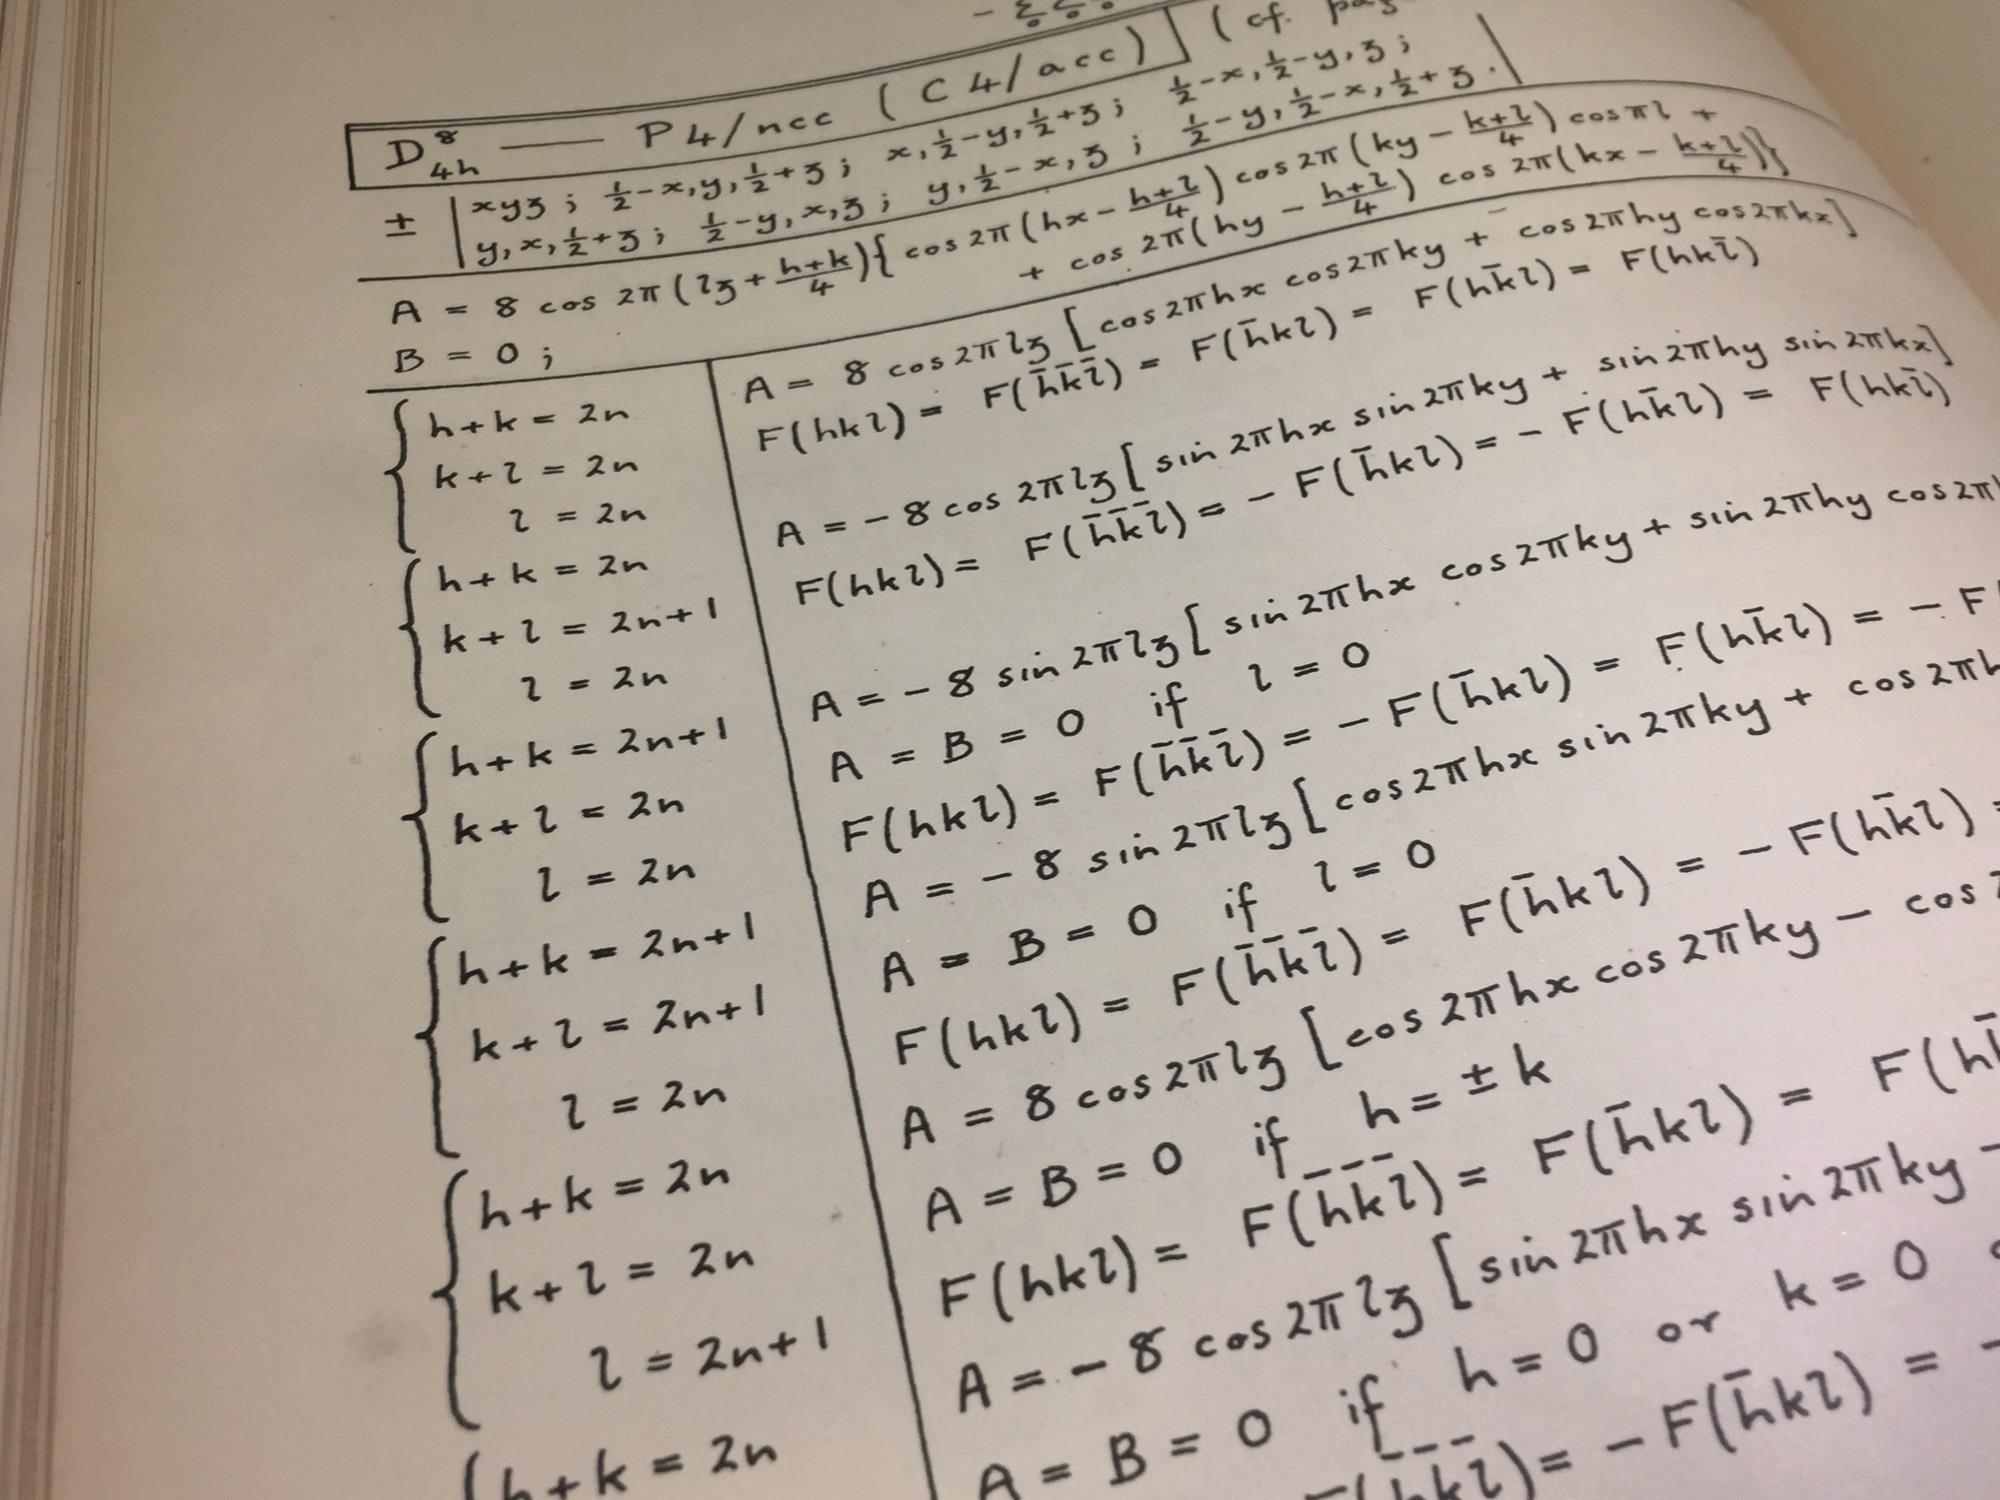 D⁸₄ₕ —— P4/ncc (C4/acc) (cf.
± | xyz; ½-x,y,½+z; x,½-y,½+z; ½-x,½-y,z;
y,x,½+z; ½-y,x,z; y,½-x,z; ½-y,½-x,½+z. |
A = 8 cos 2π(lz + (h+k)/4){cos 2π(hx - (h+l)/4) cos 2π(ky - (k+l)/4) cos πl +
+ cos 2π(hy - (h+l)/4) cos 2π(kx - (k+l)/4)}
B = 0;
h+k = 2n
k+l = 2n
l = 2n
A = 8 cos2πlz [cos2πhx cos2πky + cos2πhy cos2πkx]
F(hkl) = F(h̄k̄l̄) = F(h̄kl) = F(hk̄l) = F(hkl̄)
h+k = 2n
k+l = 2n+1
l = 2n
A = -8 cos 2πlz [sin 2πhx sin 2πky + sin 2πhy sin 2πkx]
F(hkl) = F(h̄k̄l̄) = -F(h̄kl) = -F(hk̄l) = F(hkl̄)
h+k = 2n+1
k+l = 2n
l = 2n
A = -8 sin 2πlz [sin 2πhx cos 2πky + sin 2πhy cos 2π
A = B = 0 if l = 0
F(hkl) = F(h̄k̄l̄) = -F(h̄kl) = F(hk̄l) = -F
h+k = 2n+1
k+l = 2n+1
l = 2n
A = -8 sin 2πlz [cos2πhx sin 2πky + cos2πh
A = B = 0 if l = 0
F(hkl) = F(h̄k̄l̄) = F(h̄kl) = -F(hk̄l) =
h+k = 2n
k+l = 2n
l = 2n+1
A = 8 cos2πlz [cos 2πhx cos 2πky - cos
A = B = 0 if h = ±k
F(hkl) = F(h̄k̄l̄) = F(h̄kl) = F(h
h+k = 2n
A = -8 cos 2πlz [sin 2πhx sin 2πky -
A = B = 0 if h = 0 or k = 0
(h̄k̄l̄) = -F(h̄kl) = -